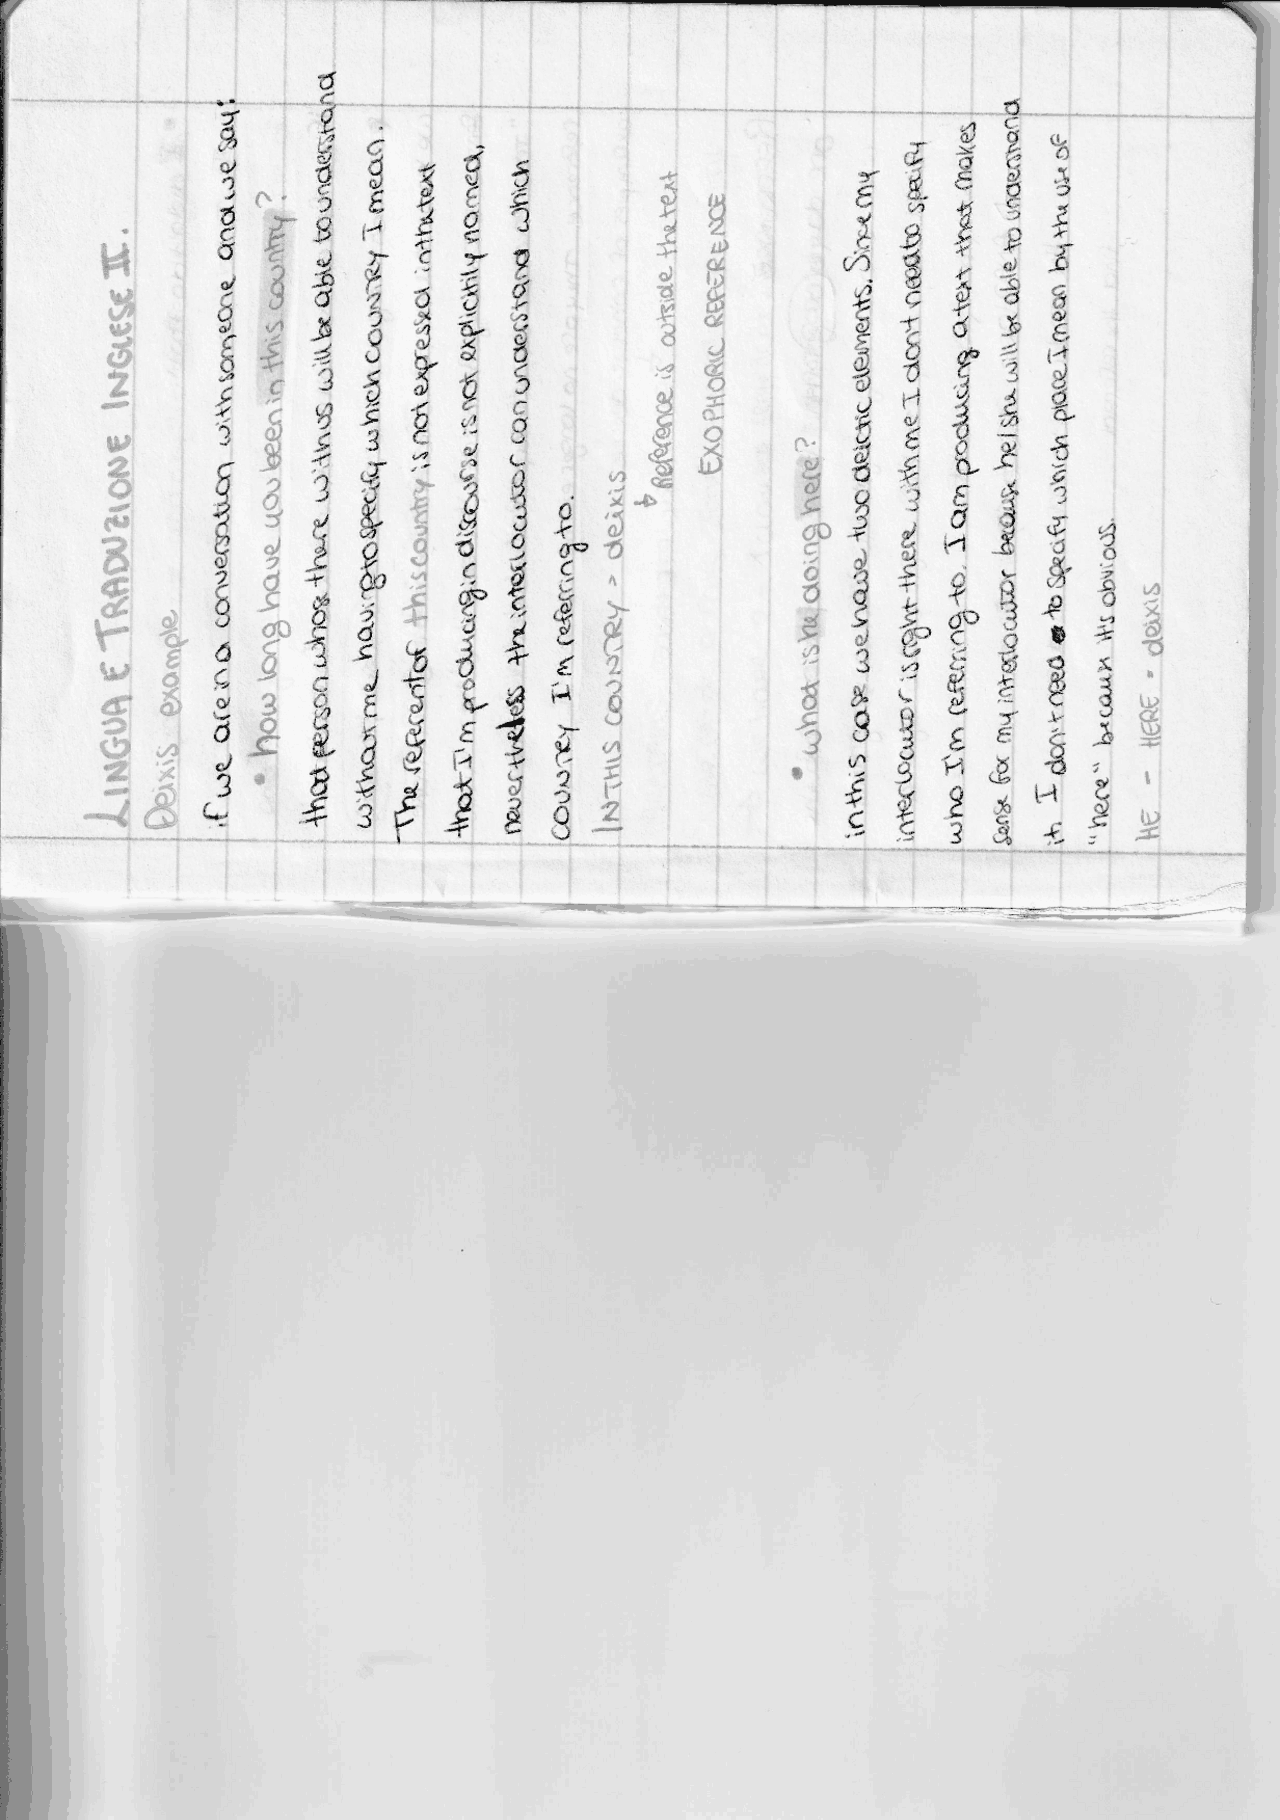 LINGUA E TRADUZIONE INGLESE II.
Deixis example
if we are in a conversation with someone and we say:
• how long have you been in this country?
that person whose there with us will be able to understand
without me having to specify which country I mean.
The referent of this country is not expressed in the text
that I'm producing in discourse is not explicitily named,
nevertheless the interlocutor can understand which
country I'm referring to.
IN THIS COUNTRY > deixis
↳ Reference is outside the text
EXOPHORIC REFERENCE
• what is he doing here?
in this case we have two deictic elements. Since my
interlocutor is right there with me I don't need to specify
who I'm referring to. I am producing a text that makes
sense for my interlocutor because he/she will be able to understand
it. I don't need to specify which place I mean by the use of
"here" because it's obvious.
HE - HERE = deixis